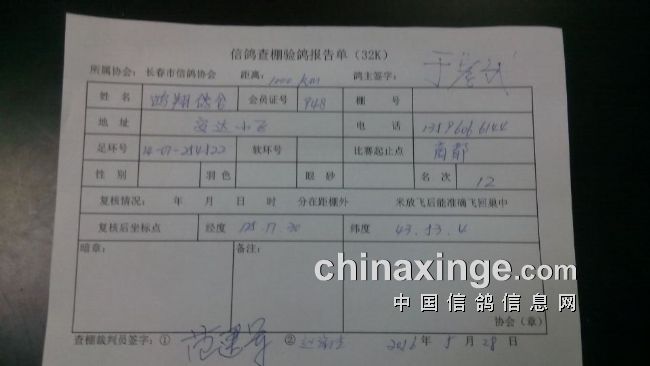 信鸽查棚验鸽报告单（32K）
所属协会：长春市信鸽协会 距离：1000 KM 鸽主签字：
姓名 鸿翔俱会 会员证号 948 棚号
地址 安达小飞 电话 13596066144
足环号 14-07-254522 软环号 比赛起止点 商都
性别 羽色 眼砂 名次 12
复核情况： 年 月 日 时 分在距棚外 米放飞后能准确飞回巢中
复核后坐标点 经度 125.17.30 纬度 43.53.4
暗章： 备注：
chinaxinge.com
中国信鸽信息网
协会（章）
查棚裁判员签字：① 范建军 ② 2016年5月28日